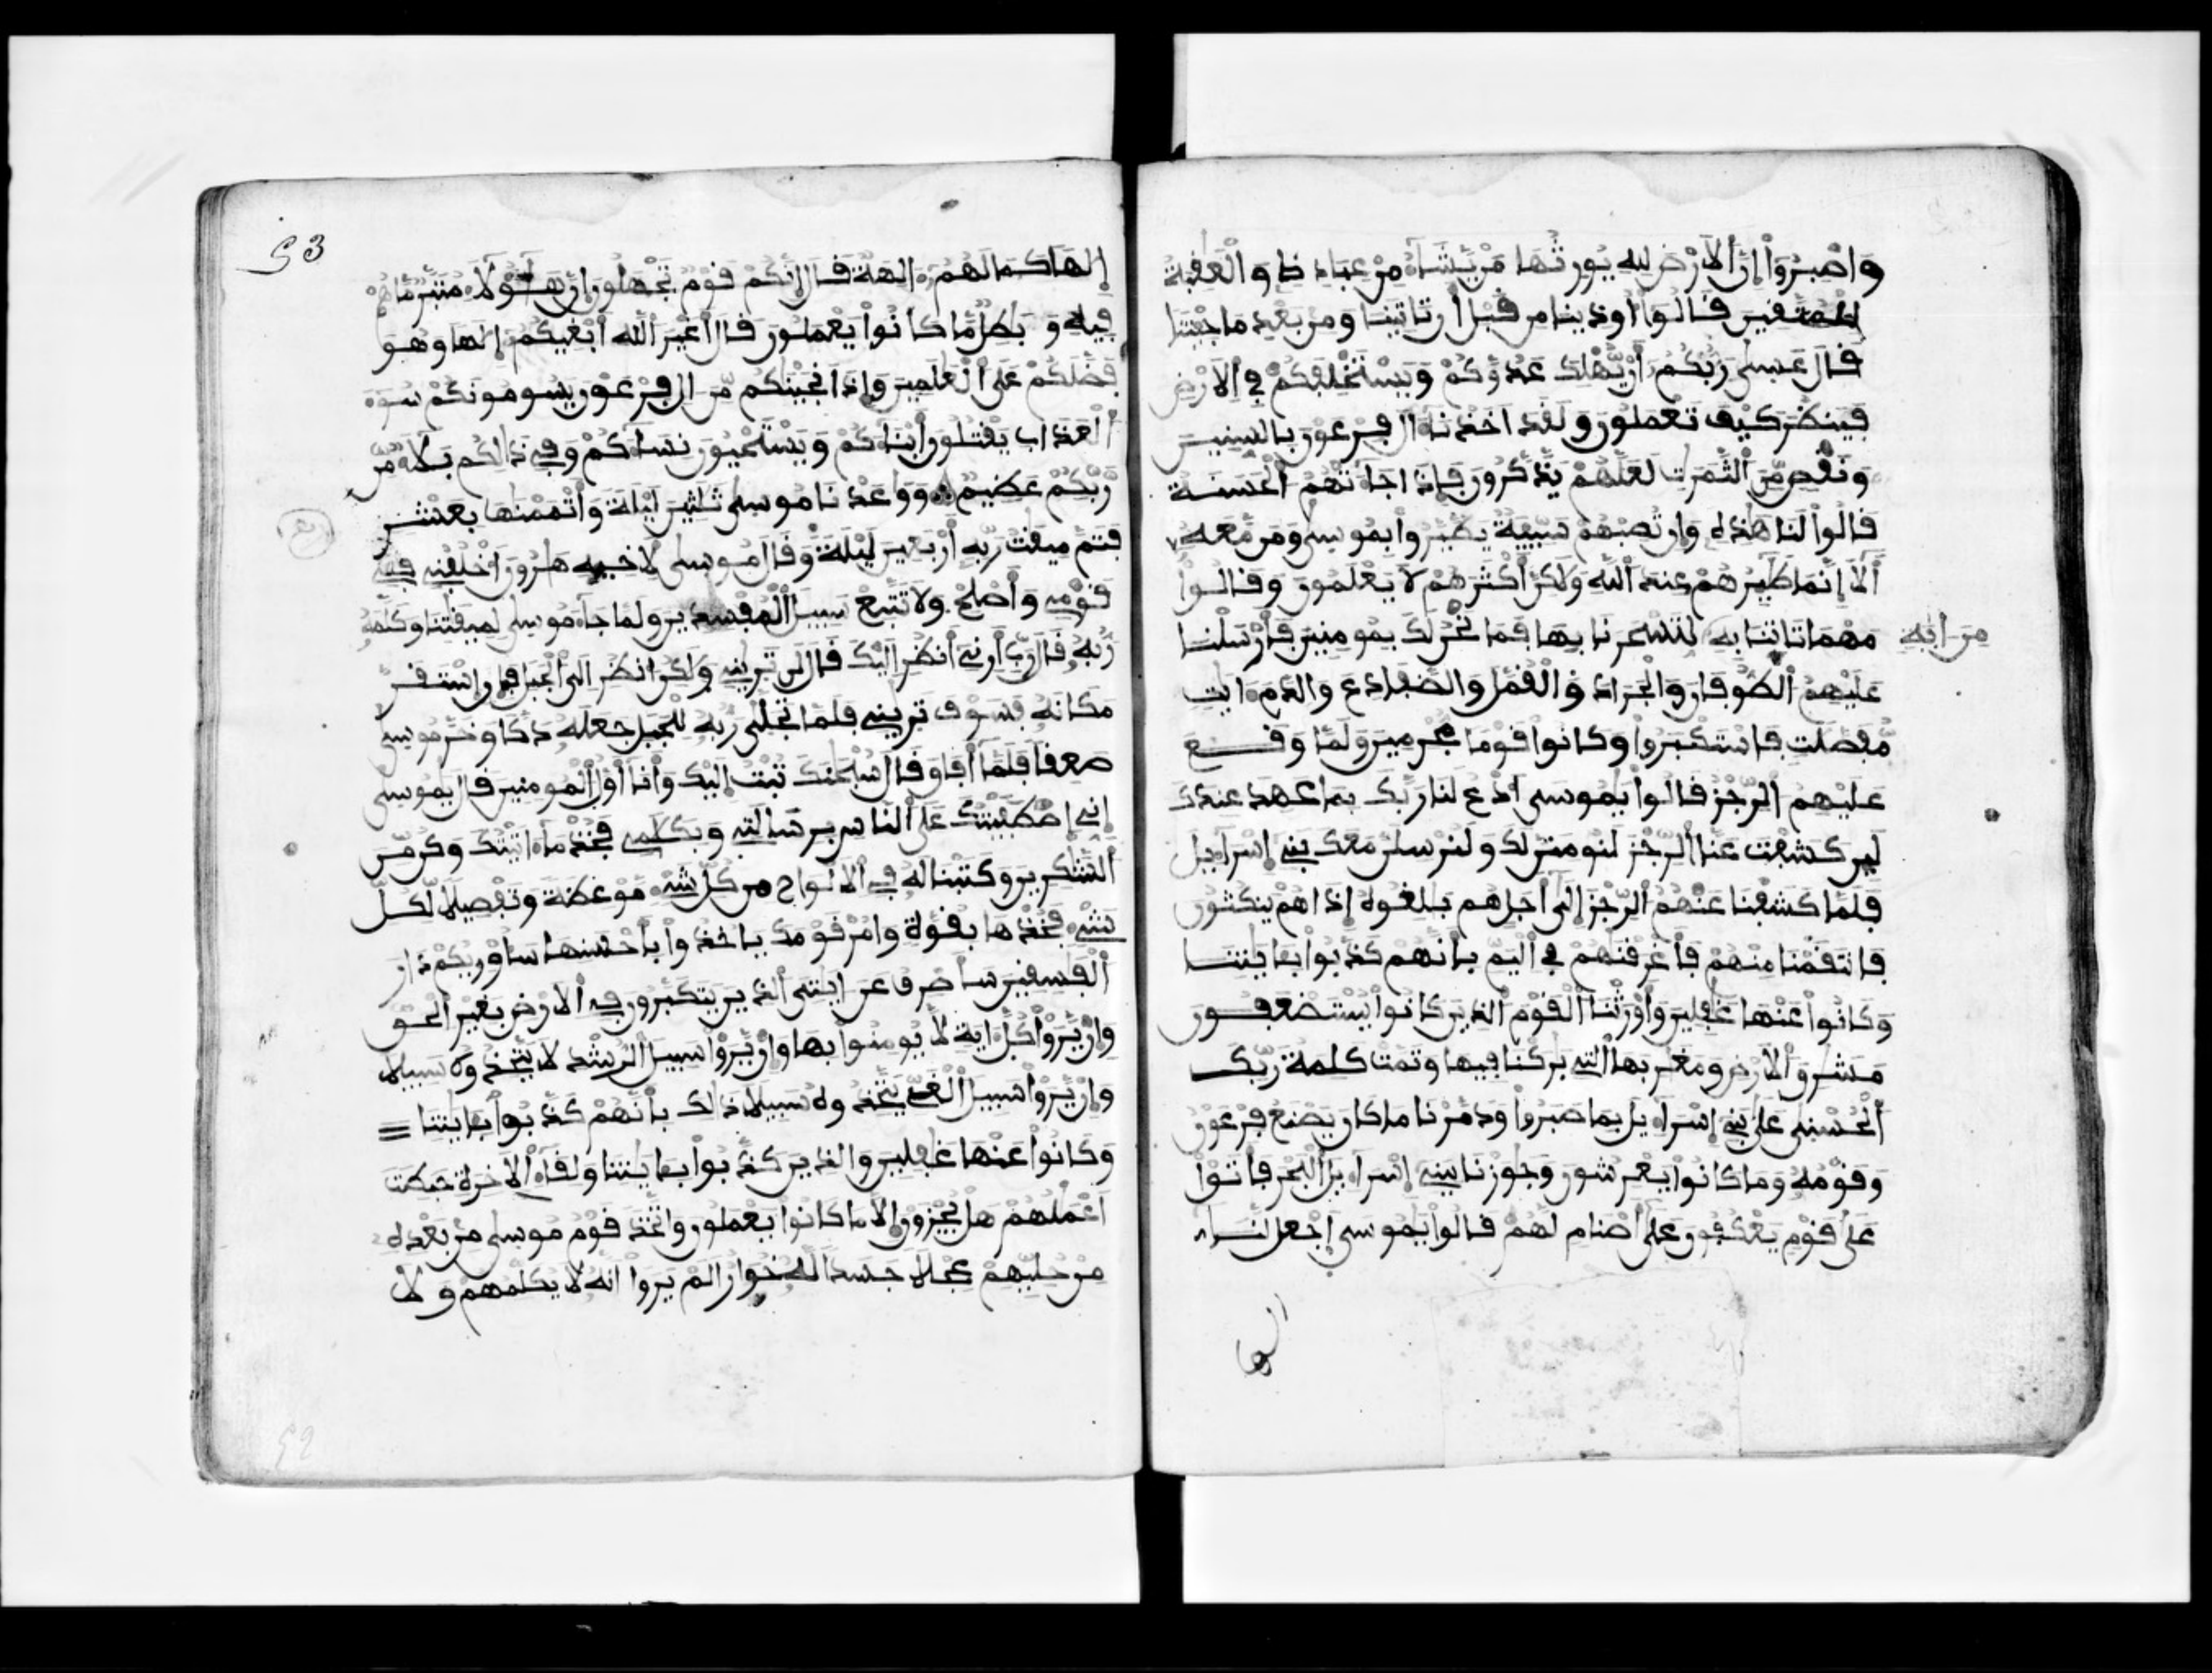 واصبروا إن الارض لله يورثها من يشاء من عباده والعقبة
للمتقين قالوا أوذينا من قبل أن تاتينا ومن بعد ما جيتنا
قال عسى ربكم أن يهلك عدوكم ويستخلفكم في الارض
فينظر كيف تعملون ولقد اخذنا ءال فرعون بالسنين
ونقص من الثمرت لعلهم يذكرون فإذا جاءتهم الحسنة
قالوا لنا هذه وإن تصبهم سيية يطيروا بموسى ومن معه
ألا إنما طيرهم عند الله ولكن أكثرهم لا يعلمون وقالوا
مهما تاتنا به لتسحرنا بها فما نحن لك بمومنين فأرسلنا
من ايه
عليهم الطوفان والجراد والقمل والضفادع والدم ءايت
مفصلت فاستكبروا وكانوا قوما مجرمين ولما وقع
عليهم الرجز قالوا يموسى ادع لنا ربك بما عهد عندك
لين كشفت عنا الرجز لنومنن لك ولنرسلن معك بني إسراءيل
فلما كشفنا عنهم الرجز إلى أجل هم بلغوه إذا هم ينكثون
فانتقمنا منهم فأغرقنهم في اليم بأنهم كذبوا بايتنا
وكانوا عنها غفلين وأورثنا القوم الذين كانوا يستضعفون
مشرق الارض ومغربها التي بركنا فيها وتمت كلمة ربك
الحسنى على بني إسراءيل بما صبروا ودمرنا ما كان يصنع فرعون
وقومه وما كانوا يعرشون وجوزنا ببني إسراءيل البحر فأتوا
على قوم يعكفون على أصنام لهم قالوا يموسى إجعل لنا
إلها
53
إلها كما لهم ءالهة قال إنكم قوم تجهلون إن هؤلاء متبر ما هم
فيه وبطل ما كانوا يعملون قال أغير الله أبغيكم إلها وهو
فضلكم على العلمين وإذ انجينكم من ءال فرعون يسومونكم سوء
العذاب يقتلون أبناءكم ويستحيون نساءكم وفي ذالكم بلاء من
ربكم عظيم ووعدنا موسى ثلثين ليلة وأتممنها بعشر
فتم ميقت ربه أربعين ليلة وقال موسى لاخيه هرون اخلفني في
قومي وأصلح ولا تتبع سبيل المفسدين ولما جاء موسى لميقتنا وكلمه
ربه قال رب أرني أنظر إليك قال لن تريني ولكن انظر إلى الجبل فإن استقر
مكانه فسوف تريني فلما تجلى ربه للجبل جعله دكا وخر موسى
صعقا فلما أفاق قال سبحنك تبت إليك وأنا أول المومنين قال يموسى
إني إصطفيتك على الناس برسالتي وبكلمي فخذ ما ءاتيتك وكن من
الشكرين وكتبنا له في الالواح من كل شيء موعظة وتفصيلا لكل
شيء فخذها بقوة وامر قومك ياخذوا بأحسنها سأوريكم دار
الفسقين سأصرف عن ءايتي الذين يتكبرون في الارض بغير الحق
وإن يروا كل ءاية لا يومنوا بها وإن يروا سبيل الرشد لا يتخذوه سبيلا
وإن يروا سبيل الغي يتخذوه سبيلا ذلك بأنهم كذبوا بايتنا
وكانوا عنها غفلين والذين كذبوا بايتنا ولقاء الاخرة حبطت
اعملهم هل يجزون إلا ما كانوا يعملون واتخذ قوم موسى من بعده
من حليهم عجلا جسدا له خوار الم يروا انه لا يكلمهم ولا
52